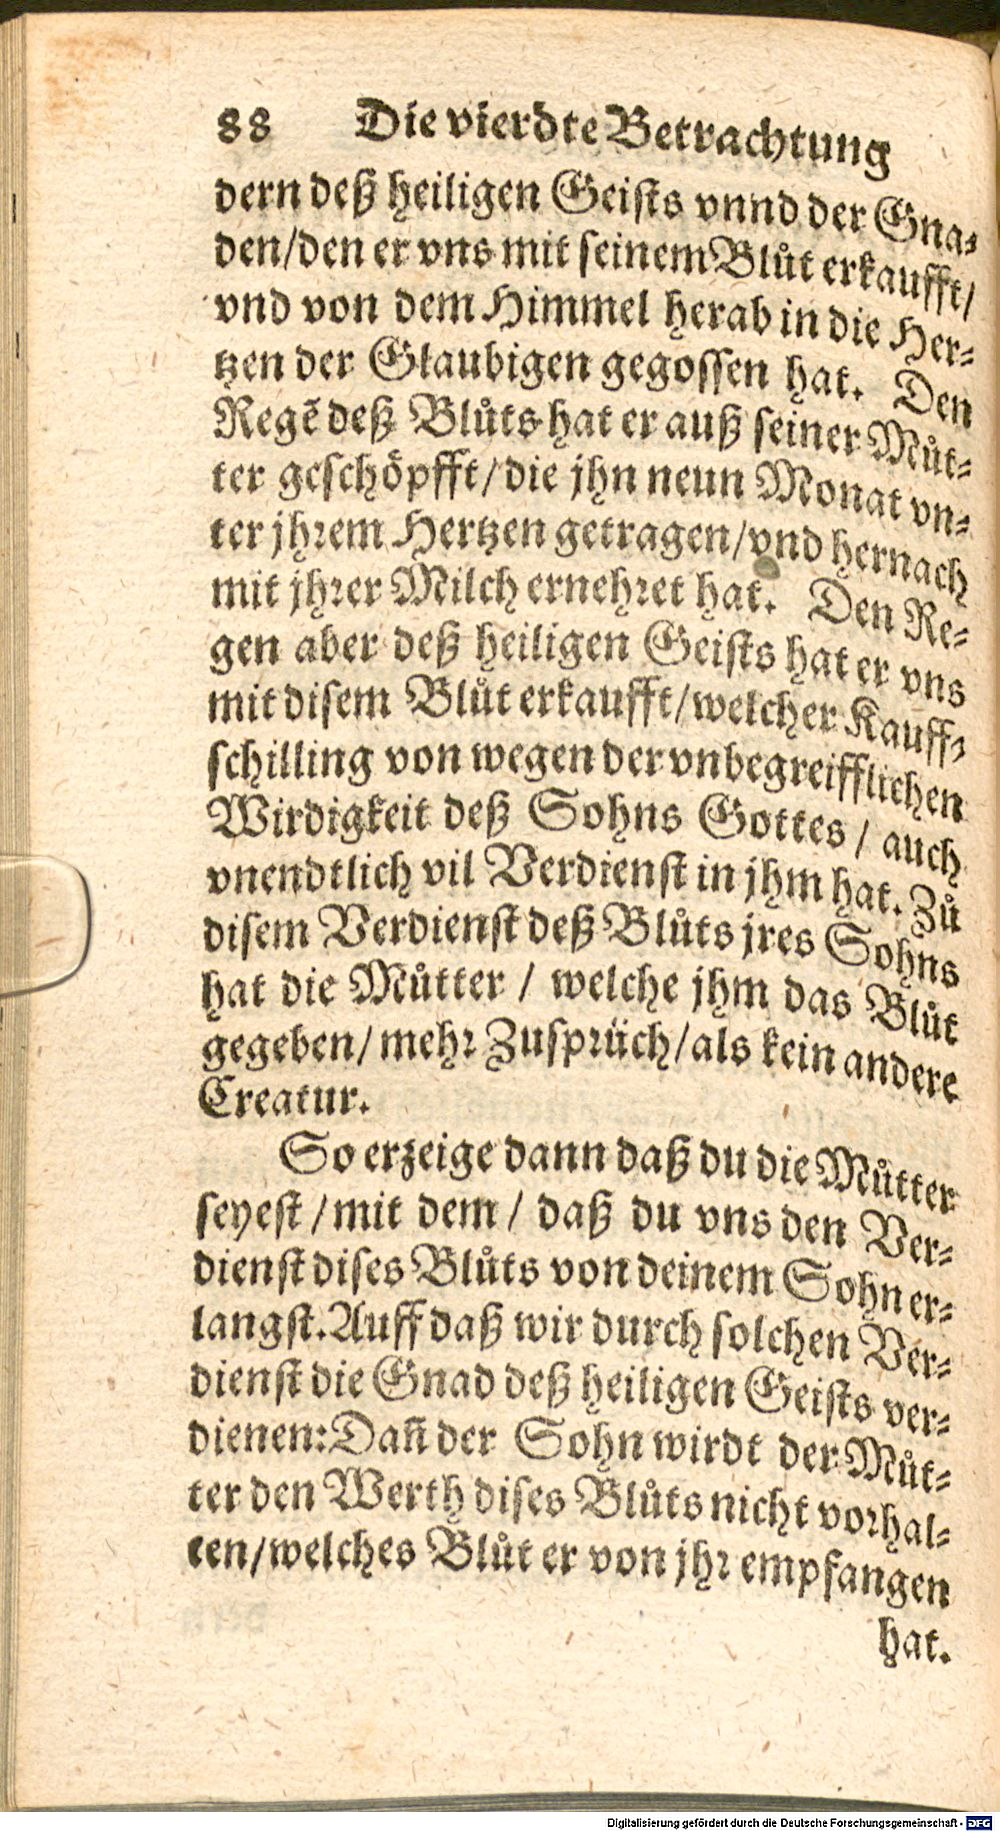 88 Die vierdte Betrachtung
dern deß heiligen Geists vnnd der Gna-
den/den er vns mit seinem Blůt erkaufft/
vnd von dem Himmel herab in die Her-
tzen der Glaubigen gegossen hat. Den
Regẽ deß Blůts hat er auß seiner Můt-
ter geschöpfft/die jhn neun Monat vn-
ter jhrem Hertzen getragen/vnd hernach
mit jhrer Milch ernehret hat. Den Re-
gen aber deß heiligen Geists hat er vns
mit disem Blůt erkaufft/welcher Kauff-
schilling von wegen der vnbegreifflichen
Wirdigkeit deß Sohns Gottes / auch
vnendtlich vil Verdienst in jhm hat. Zů
disem Verdienst deß Blůts jres Sohns
hat die Můtter / welche jhm das Blůt
gegeben/mehr Zusprüch/als kein andere
Creatur.
So erzeige dann daß du die Můtter
seyest /mit dem / daß du vns den Ver-
dienst dises Blůts von deinem Sohn er-
langst. Auff daß wir durch solchen Ver-
dienst die Gnad deß heiligen Geists ver-
dienen: Dañ der Sohn wirdt der Můt-
ter den Werth dises Blůts nicht vorhal-
ten/welches Blůt er von jhr empfangen
hat.
Digitalisierung gefördert durch die Deutsche Forschungsgemeinschaft - DFG